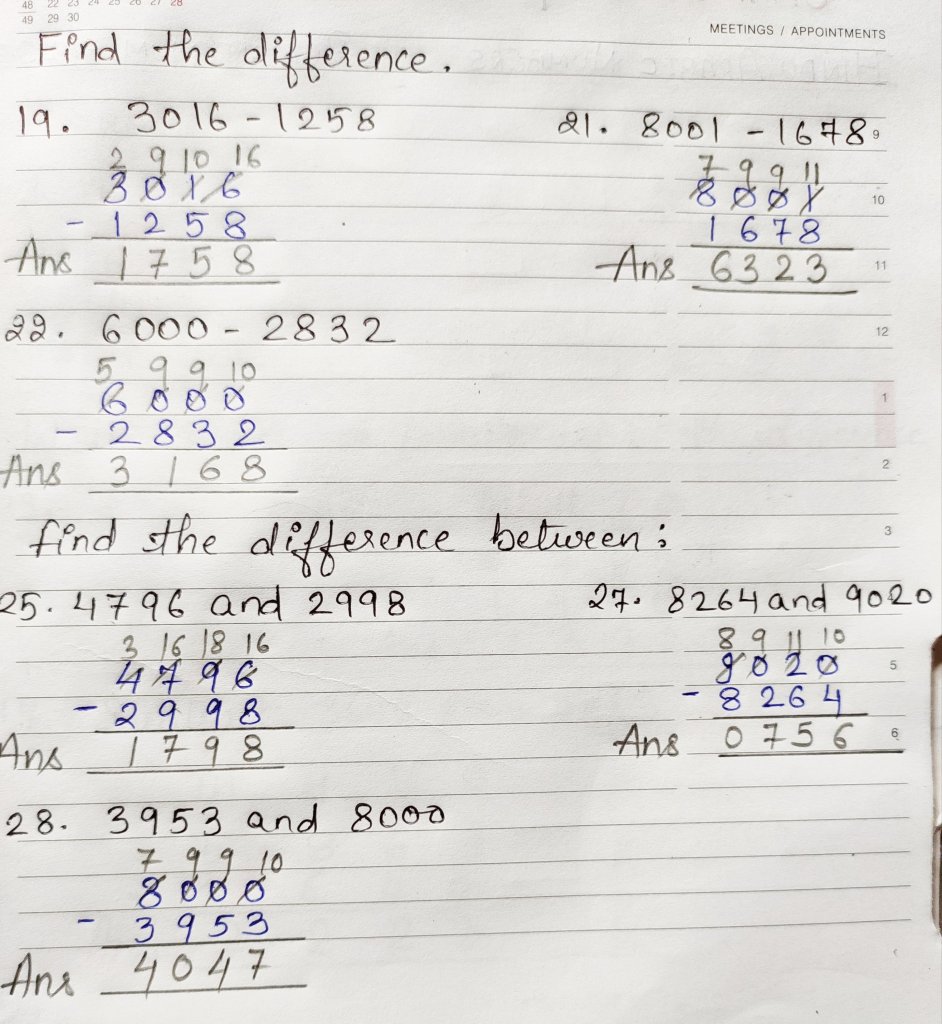 48 22 23 24 25 26 27 28
49 29 30
MEETINGS / APPOINTMENTS
Find the difference.
19. 3016 - 1258
2 9 10 16
3 0 1 6
- 1 2 5 8
Ans 1 7 5 8
21. 8001 - 1678
7 9 9 11
8 0 0 1
1 6 7 8
Ans 6 3 2 3
22. 6000 - 2832
5 9 9 10
6 0 0 0
- 2 8 3 2
Ans 3 1 6 8
find the difference between :
25. 4796 and 2998
3 16 18 16
4 7 9 6
- 2 9 9 8
Ans 1 7 9 8
27. 8264 and 9020
8 9 11 10
9 0 2 0
- 8 2 6 4
Ans 0 7 5 6
28. 3953 and 8000
7 9 9 10
8 0 0 0
- 3 9 5 3
Ans 4 0 4 7
9
10
11
12
1
2
3
5
6